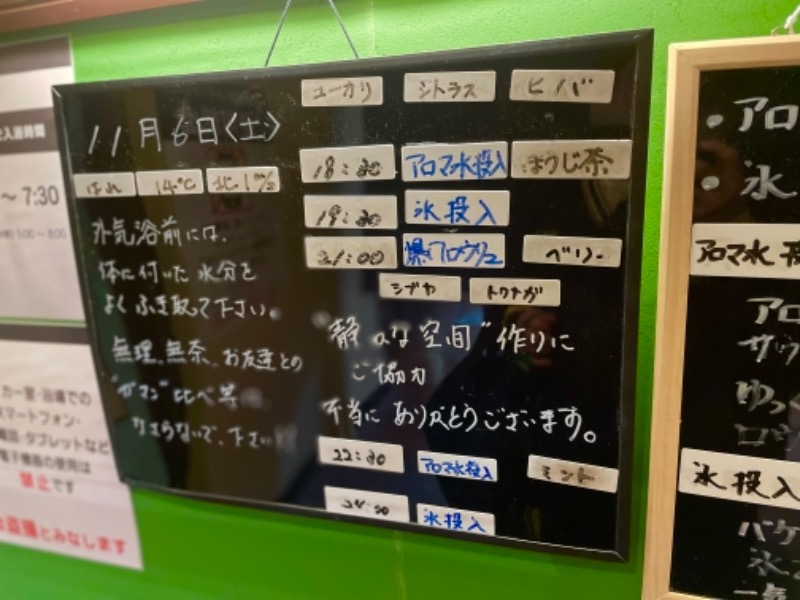 入浴時間
～ 7:30
5:00 ～ 8:00
カー室・浴場での
スマートフォン・
電話・タブレットなど
電子機器の使用は
禁止です
盗撮とみなします
11月6日〈土〉
はれ 14℃ 北1㎧
外気浴前には、
体に付いた水分を
よくふき取って下さい。
無理、無茶、お友達との
"ガマン"比べ等
なさらないで、下さい
ユーカリ シトラス ヒノバ
18:30 アロマ水投入 ほうじ茶
19:30 氷投入
21:00 爆アロウリュ ベリー
シブヤ トクナガ
"静かな空間"作りに
ご協力
本当にありがとうございます。
22:30 アロマ水投入 ミント
24:30 氷投入
・アロ
・氷
アロマ水投
アロ
サウ
ゆっく
ロウ
氷投入
バケ
氷
一気